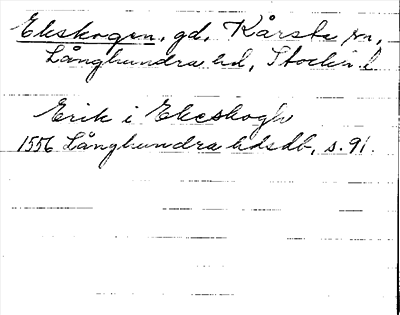 Ekskogen, gd, Kårsta sn,
Långhundra hd, Stockh. l.
Erik i Ekeskogh
1556 Långhundra hdsdb, s. 91.